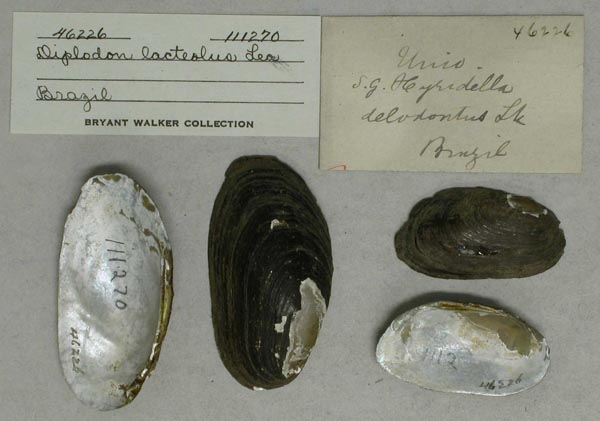 46226 111270
Diplodon lacteolus Lea
Brazil
BRYANT WALKER COLLECTION
46226
Unio.
S.G. Hyridella
delodontus Lk
Brazil
111270
46226
112
46226